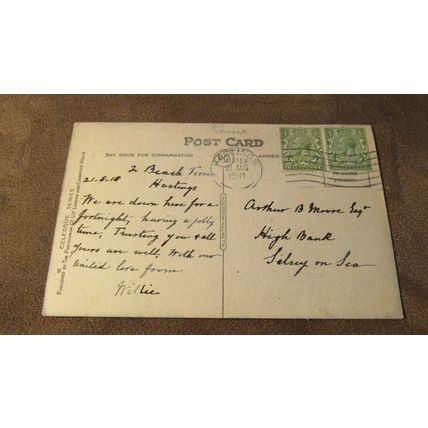 Sunset
POST CARD
THIS SPACE FOR COMMUNICATION
ADDRESS
HASTINGS
21 AUG
1918
2 Beach Terrace
Hastings
21.8.18
We are down here for a
fortnight, having a jolly
time, Trusting you & all
yours are well, With our
united love from
Willie
Arthur B Moore Esqr
High Bank
Selsey on Sea
CELESQUE SERIES
PUBLISHED BY THE PHOTOCHROM CO LTD LONDON AND TUNBRIDGE WELLS